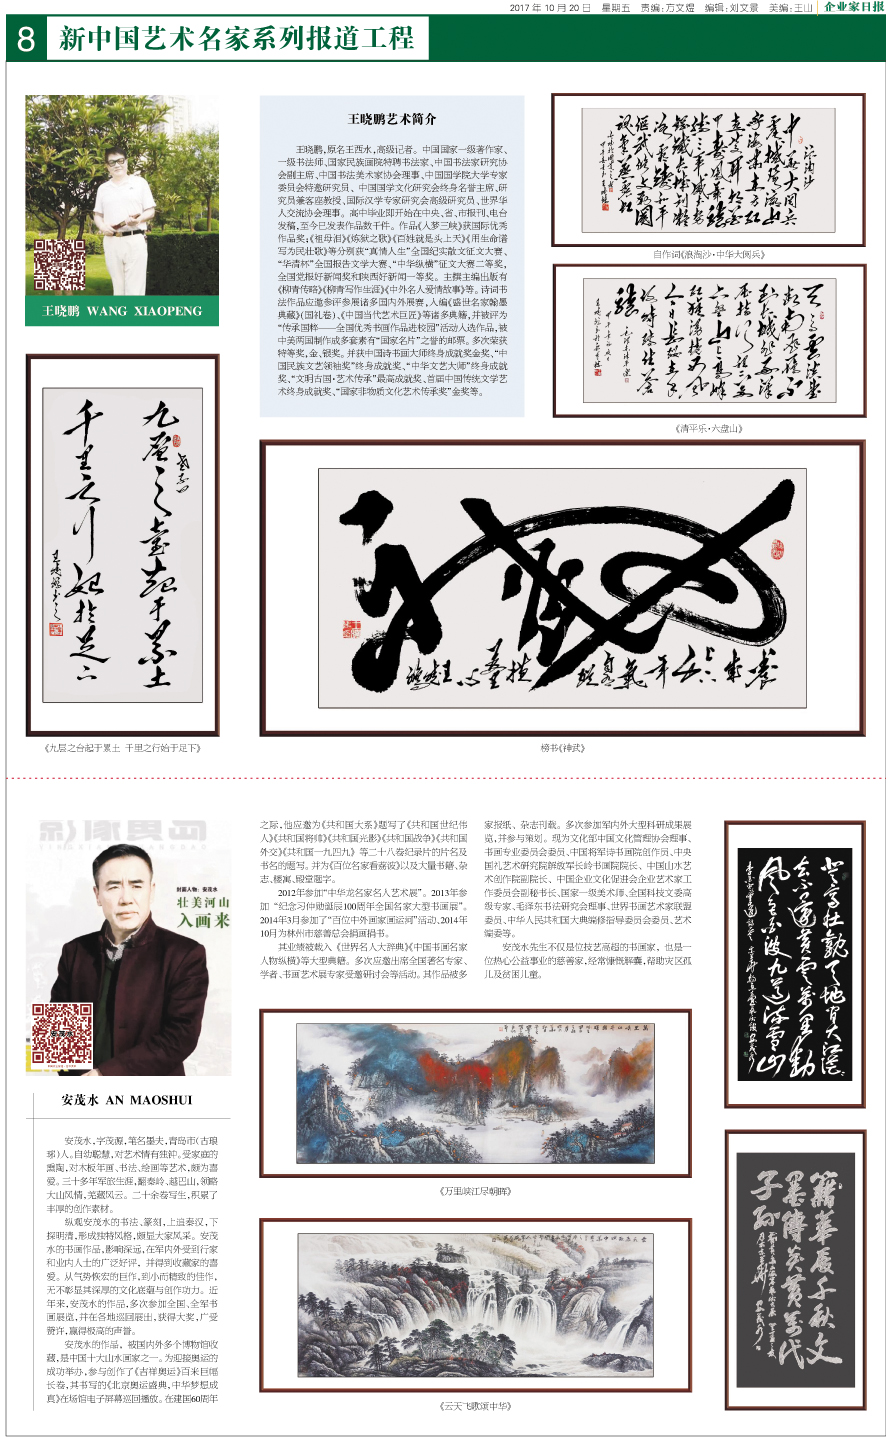 2017 年 10 月 20 日 星期五 责编:方文煜 编辑:刘文景 美编:王山 企业家日报
8 新中国艺术名家系列报道工程
王晓鹏 WANG XIAOPENG
王晓鹏艺术简介
王晓鹏,原名王西水,高级记者。中国国家一级著作家、
一级书法师、国家民族画院特聘书法家、中国书法家研究协
会副主席、中国书法美术家协会理事、中国国学院大学专家
委员会特邀研究员、中国国学文化研究会终身名誉主席、研
究员兼客座教授、国际汉学专家研究会高级研究员、世界华
人交流协会理事。高中毕业即开始在中央、省、市报刊、电台
发稿,至今已发表作品数千件。作品《人梦三峡》获国际优秀
作品奖;《祖母泪》《炼狱之歌》《百姓就是头上天》《用生命谱
写为民壮歌》等分别获“真情人生”全国纪实散文征文大赛、
“华清杯”全国报告文学大赛、“中华纵横”征文大赛二等奖,
全国党报好新闻奖和陕西好新闻一等奖。主撰主编出版有
《柳青传略》《柳青写作生涯》《中外名人爱情故事》等。诗词书
法作品应邀参评参展诸多国内外展赛,入编《盛世名家翰墨
典藏》(国礼卷)、《中国当代艺术巨匠》等诸多典籍,并被评为
“传承国粹——全国优秀书画作品进校园”活动入选作品,被
中美两国制作成多套素有“国家名片”之誉的邮票。多次荣获
特等奖,金、银奖。并获中国诗书画大师终身成就奖金奖、“中
国民族文艺领袖奖”终身成就奖、“中华文艺大师”终身成就
奖、“文明古国·艺术传承”最高成就奖、首届中国传统文学艺
术终身成就奖、“国家非物质文化艺术传承奖”金奖等。
自作词《浪淘沙·中华大阅兵》
《清平乐·六盘山》
九层之台起于累土
千里之行始于足下
《九层之台起于累土 千里之行始于足下》
榜书《神武》
封面人物:安茂水
壮美河山
入画来
安茂水 AN MAOSHUI
安茂水,字茂源,笔名墨夫,青岛市(古琅
琊)人。自幼聪慧,对艺术情有独钟。受家庭的
熏陶,对木板年画、书法、绘画等艺术,颇为喜
爱。三十多年军旅生涯,翻秦岭、越巴山,领略
大山风情,羌藏风云。二十余卷写生,积累了
丰厚的创作素材。
纵观安茂水的书法、篆刻,上追秦汉,下
探明清,形成独特风格,颇显大家风采。安茂
水的书画作品,影响深远,在军内外受到行家
和业内人士的广泛好评,并得到收藏家的喜
爱。从气势恢宏的巨作,到小而精致的佳作,
无不彰显其深厚的文化底蕴与创作功力。近
年来,安茂水的作品,多次参加全国、全军书
画展览,并在各地巡回展出,获得大奖,广受
赞许,赢得极高的声誉。
安茂水的作品,被国内外多个博物馆收
藏,是中国十大山水画家之一。为迎接奥运的
成功举办,参与创作了《吉祥奥运》百米巨幅
长卷,其书写的《北京奥运盛典,中华梦想成
真》在场馆电子屏幕巡回播放。在建国60周年
之际,他应邀为《共和国大系》题写了《共和国世纪伟
人》《共和国将帅》《共和国光影》《共和国战争》《共和国
外交》《共和国一九四九》等二十八卷纪录片的片名及
书名的题写。并为《百位名家看荔波》以及大量书稿、杂
志、楼寓、殿堂题字。
2012年参加“中华龙名家名人艺术展”。2013年参
加“纪念习仲勋诞辰100周年全国名家大型书画展”。
2014年3月参加了“百位中外画家画运河”活动、2014年
10月为林州市慈善总会捐画捐书。
其业绩被载入《世界名人大辞典》《中国书画名家
人物纵横》等大型典籍。多次应邀出席全国著名专家、
学者、书画艺术展专家受邀研讨会等活动。其作品被多
家报纸、杂志刊载。多次参加军内外大型科研成果展
览,并参与策划。现为文化部中国文化管理协会理事、
书画专业委员会委员、中国将军诗书画院创作员、中央
国礼艺术研究院解放军长岭书画院院长、中国山水艺
术创作院副院长、中国企业文化促进会企业艺术家工
作委员会副秘书长、国家一级美术师、全国科技文委高
级专家、毛泽东书法研究会理事、世界书画艺术家联盟
委员、中华人民共和国大典编修指导委员会委员、艺术
编委等。
安茂水先生不仅是位技艺高超的书画家,也是一
位热心公益事业的慈善家,经常慷慨解囊,帮助灾区孤
儿及贫困儿童。
《万里峡江尽朝晖》
《云天飞歌颂中华》
登高壮观天地间大江茫茫
去不还黄云万里动
风色白波九道流雪山